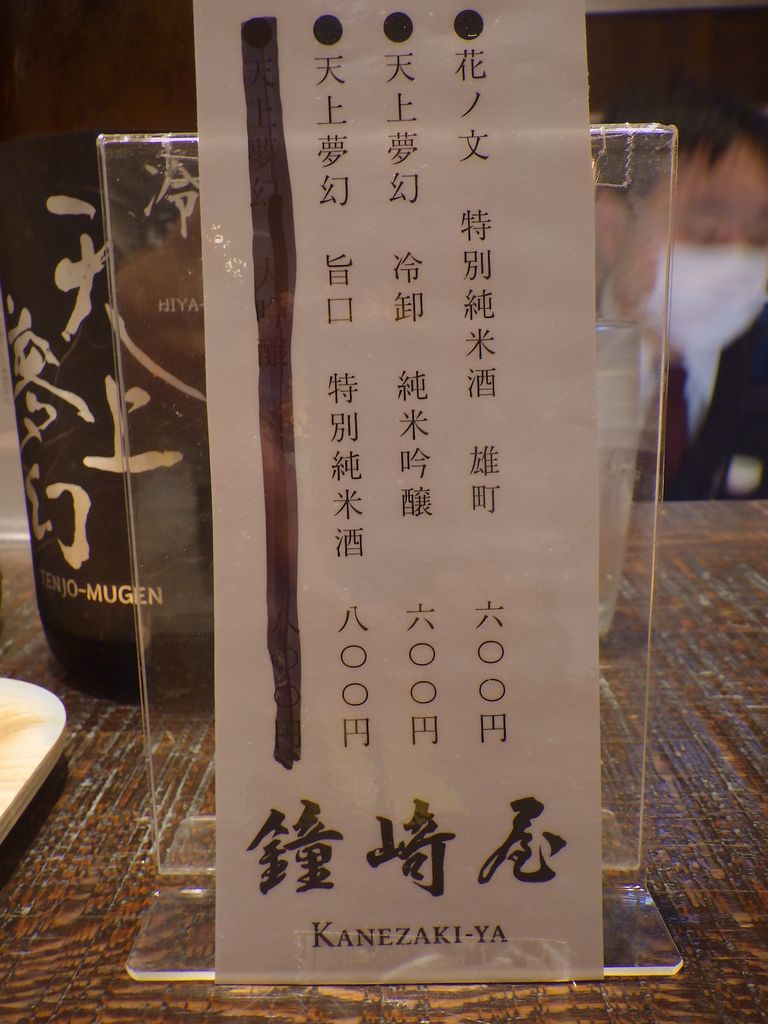 ●花ノ文　特別純米酒　雄町　六〇〇円
●天上夢幻　冷卸　純米吟醸　六〇〇円
●天上夢幻　旨口　特別純米酒　八〇〇円
●天上夢幻　大吟醸　八〇〇円
鐘崎屋
KANEZAKI-YA
冷
HIYA-
天上
夢幻
TENJO-MUGEN